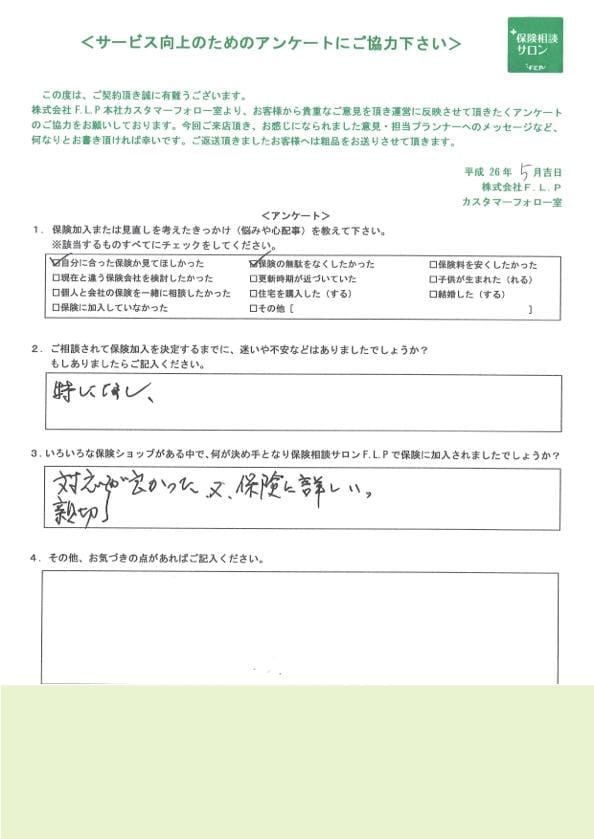 ＜サービス向上のためのアンケートにご協力下さい＞
保険相談
サロン
F.L.P
この度は、ご契約頂き誠に有難うございます。
株式会社F.L.P本社カスタマーフォロー室より、お客様から貴重なご意見を頂き運営に反映させて頂きたくアンケート
のご協力をお願いしております。今回ご来店頂き、お感じになられました意見・担当プランナーへのメッセージなど、
何なりとお書き頂ければ幸いです。ご返送頂きましたお客様へは粗品をお送りさせて頂きます。
平成 26 年 5 月吉日
株式会社F.L.P
カスタマーフォロー室
＜アンケート＞
1．保険加入または見直しを考えたきっかけ（悩みや心配事）を教えて下さい。
※該当するものすべてにチェックをしてください。
☑自分に合った保険か見てほしかった ☑保険の無駄をなくしたかった □保険料を安くしたかった
□現在と違う保険会社を検討したかった □更新時期が近づいていた □子供が生まれた（れる）
□個人と会社の保険を一緒に相談したかった □住宅を購入した（する） □結婚した（する）
□保険に加入していなかった □その他［ ］
2．ご相談されて保険加入を決定するまでに、迷いや不安などはありましたでしょうか？
もしありましたらご記入ください。
特になし、
3．いろいろな保険ショップがある中で、何が決め手となり保険相談サロンF.L.Pで保険に加入されましたでしょうか？
対応が良かった 又、保険に詳しい。
親切
4．その他、お気づきの点があればご記入ください。